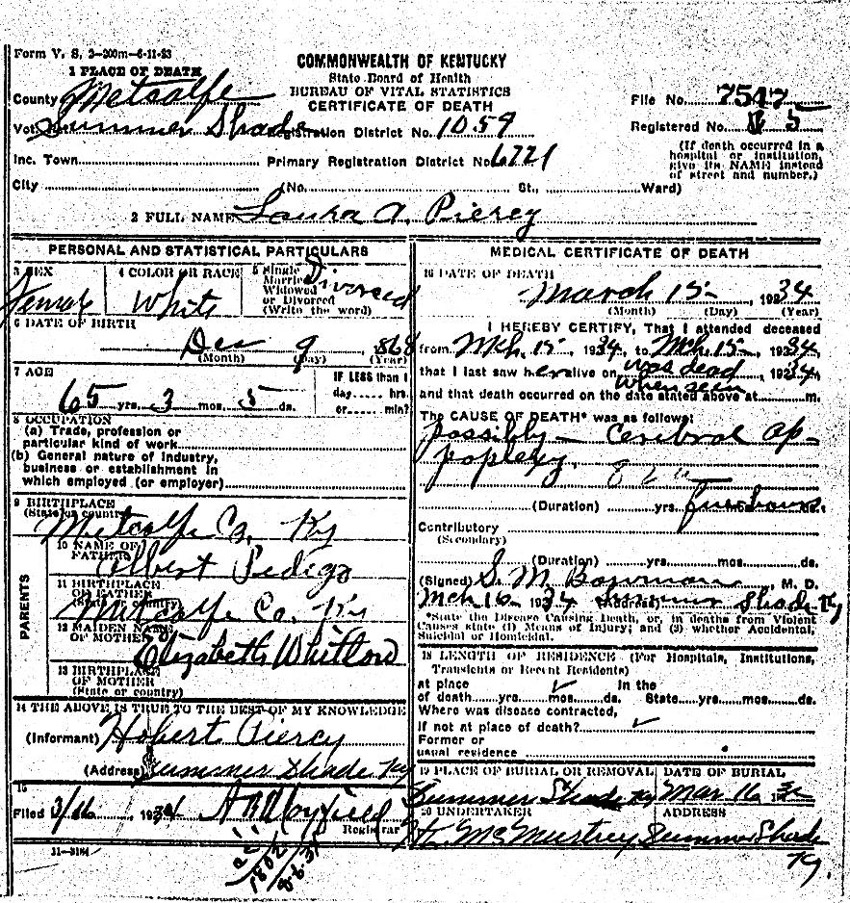 Form V. S. 2-200m-6-11-23
1 PLACE OF DEATH
COMMONWEALTH OF KENTUCKY
State Board of Health
BUREAU OF VITAL STATISTICS
CERTIFICATE OF DEATH
County Metcalfe
File No. 7547
Vot. Summer Shade Registration District No. 1059
Registered No. 5
Inc. Town Primary Registration District No. 6721
(If death occurred in a hospital or institution, give its NAME instead of street and number.)
City (No. St., Ward)
2 FULL NAME Laura A. Piercy
PERSONAL AND STATISTICAL PARTICULARS
3 SEX
Female
4 COLOR OR RACE
White
5 Single
Married
Widowed
or Divorced
(Write the word)
Divorced
6 DATE OF BIRTH
Dec 9, 1868
(Month) (Day) (Year)
7 AGE
65 yrs. 3 mos. 5 ds.
IF LESS than 1
day hrs.
or min?
8 OCCUPATION
(a) Trade, profession or
particular kind of work
(b) General nature of industry,
business or establishment in
which employed (or employer)
9 BIRTHPLACE
(State or country)
Metcalfe Co. Ky
PARENTS
10 NAME OF
FATHER
Albert Pedigo
11 BIRTHPLACE
OF FATHER
(State or country)
Metcalfe Co. Ky
12 MAIDEN NAME
OF MOTHER
Elizabeth Whitlow
13 BIRTHPLACE
OF MOTHER
(State or country)
14 THE ABOVE IS TRUE TO THE BEST OF MY KNOWLEDGE
(Informant) Hobert Piercy
(Address) Summer Shade Ky
15
Filed 3/16, 1934
Registrar
31-3184
MEDICAL CERTIFICATE OF DEATH
16 DATE OF DEATH
March 15, 1934
(Month) (Day) (Year)
I HEREBY CERTIFY, That I attended deceased
from Mch. 15, 1934, to Mch. 15, 1934
that I last saw her alive on was dead, 1934,
when seen
and that death occurred on the date stated above at m.
The CAUSE OF DEATH* was as follows:
possibly - Cerebral Ap-
poplexy.
(Duration) yrs. ds.
Contributory
(Secondary)
(Duration) yrs. mos. ds.
(Signed) S. M. Bowman, M. D.
Mch 16 1934 (Address) Summer Shade Ky
*State the Disease Causing Death, or, in deaths from Violent
Causes state (1) Means of Injury; and (2) whether Accidental,
Suicidal or Homicidal.
18 LENGTH OF RESIDENCE (For Hospitals, Institutions,
Transients or Recent Residents)
at place In the
of death yrs. mos. ds. State yrs. mos. ds.
Where was disease contracted,
If not at place of death?
Former or
usual residence
19 PLACE OF BURIAL OR REMOVAL
Summer Shade Ky
DATE OF BURIAL
Mar 16 34
20 UNDERTAKER
McMurtrey
ADDRESS
Summer Shade
Ky.